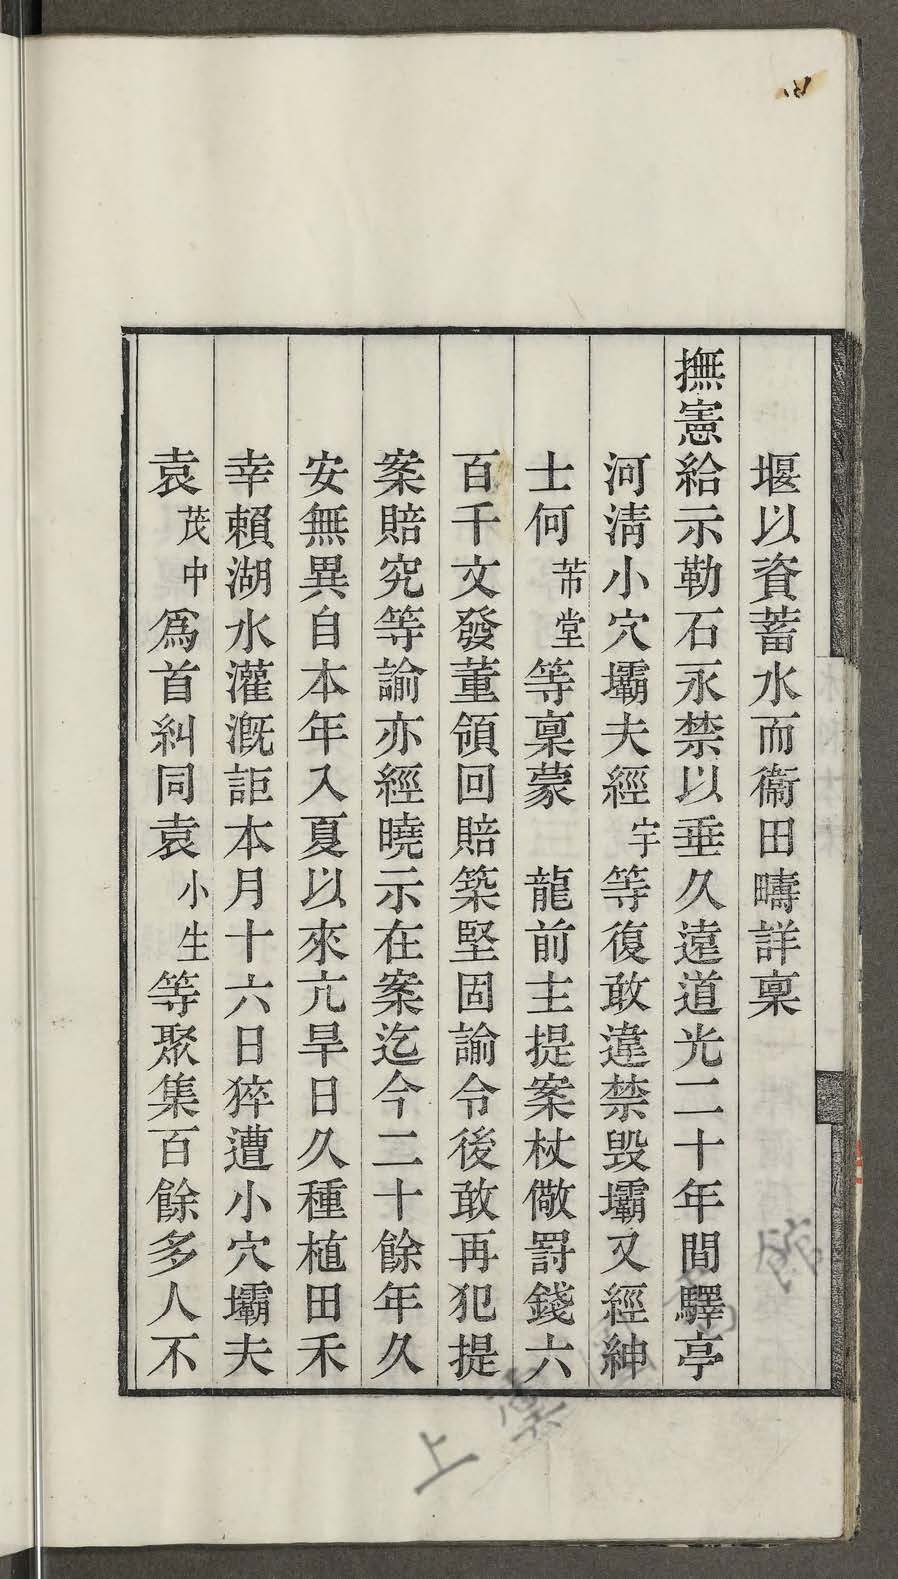 堰以資蓄水而衞田疇詳稟
撫憲給示勒石永禁以垂久遠道光二十年間驛亭
河清小穴壩夫經宇等復敢違禁毀壩又經紳
士何芾堂等稟蒙　龍前主提案杖儆罰錢六
百千文發董領回賠築堅固諭令後敢再犯提
案賠究等諭亦經曉示在案迄今二十餘年久
安無異自本年入夏以來亢旱日久種植田禾
幸賴湖水灌漑詎本月十六日猝遭小穴壩夫
袁茂中爲首糾同袁小生等聚集百餘多人不
上虞